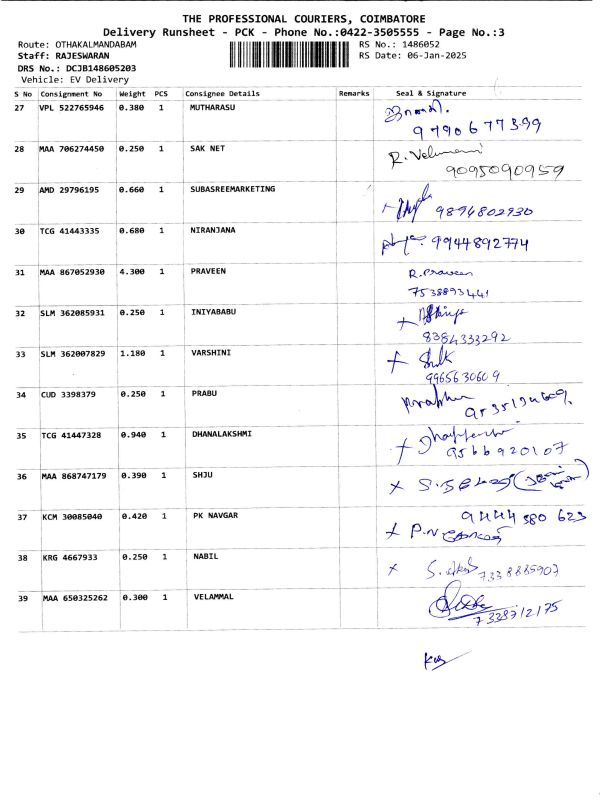 THE PROFESSIONAL COURIERS, COIMBATORE
Delivery Runsheet - PCK - Phone No.:0422-3505555 - Page No.:3
Route: OTHAKALMANDABAM RS No.: 1486052
Staff: RAJESWARAN RS Date: 06-Jan-2025
DRS No.: DCJB148605203
Vehicle: EV Delivery
S No Consignment No Weight PCS Consignee Details Remarks Seal & Signature
27 VPL 522765946 0.380 1 MUTHARASU
9790677399
28 MAA 706274450 0.250 1 SAK NET R. Velumani
9095090959
29 AMD 29796195 0.660 1 SUBASREEMARKETING
9894802930
30 TCG 41443335 0.680 1 NIRANJANA 9944892774
31 MAA 867052930 4.300 1 PRAVEEN R. Praveen
7538893441
32 SLM 362085931 0.250 1 INIYABABU
8384333292
33 SLM 362007829 1.180 1 VARSHINI
9965630609
34 CUD 3398379 0.250 1 PRABU
35 TCG 41447328 0.940 1 DHANALAKSHMI
9566920107
36 MAA 868747179 0.390 1 SHJU
37 KCM 30085040 0.420 1 PK NAVGAR 9444380623
P.N
38 KRG 4667933 0.250 1 NABIL
7338885907
39 MAA 650325262 0.300 1 VELAMMAL
7338712175